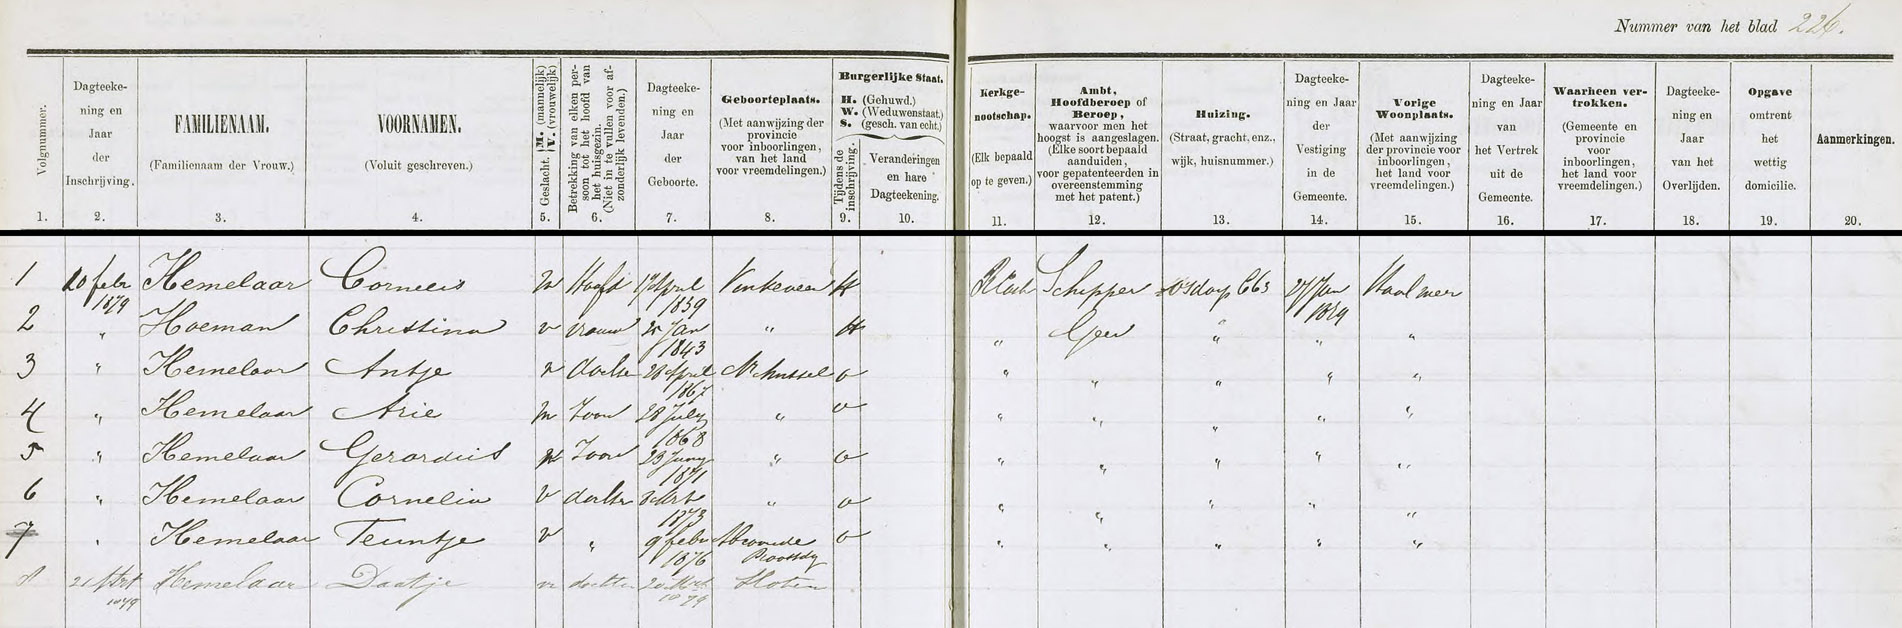 Nummer van het blad 226.
Volgnummer.
1.
Dagteeke-
ning en
Jaar
der
Inschrijving.
2.
FAMILIENAAM.
(Familienaam der Vrouw.)
3.
VOORNAMEN.
(Voluit geschreven.)
4.
Geslacht. M. (mannelijk)
V. (vrouwelijk)
5.
Betrekking van elken per-
soon tot het hoofd van
het huisgezin.
(Niet in te vullen voor af-
zonderlijk levenden.)
6.
Dagteeke-
ning en
Jaar
der
Geboorte.
7.
Geboorteplaats.
(Met aanwijzing der
provincie
voor inboorlingen,
van het land
voor vreemdelingen.)
8.
Burgerlijke Staat.
H. (Gehuwd.)
W. (Weduwenstaat.)
S. (gesch. van echt.)
Tijdens de
inschrijving.
9.
Veranderingen
en hare
Dagteekening.
10.
Kerkge-
nootschap.
(Elk bepaald
op te geven.)
11.
Ambt,
Hoofdberoep of
Beroep,
waarvoor men het
hoogst is aangeslagen.
(Elke soort bepaald
aanduiden,
voor gepatenteerden in
overeenstemming
met het patent.)
12.
Huizing.
(Straat, gracht, enz.,
wijk, huisnummer.)
13.
Dagteeke-
ning en Jaar
der
Vestiging
in de
Gemeente.
14.
Vorige
Woonplaats.
(Met aanwijzing
der provincie voor
inboorlingen,
het land voor
vreemdelingen.)
15.
Dagteeke-
ning en Jaar
van
het Vertrek
uit de
Gemeente.
16.
Waarheen ver-
trokken.
(Gemeente en
provincie
voor
inboorlingen,
het land voor
vreemdelingen.)
17.
Dagteeke-
ning en
Jaar
van het
Overlijden.
18.
Opgave
omtrent
het
wettig
domicilie.
19.
Aanmerkingen.
20.
1 20 febr 1879 Hemelaar Cornelis m Hoofd 17 April 1839 Vinkeveen H Schipper C63 27 Jan 1879
2 " Hoeman Christina v vrouw 25 Jan 1843 " H " Geen " " "
3 " Hemelaar Antje v dochter 28 April 1867 o " " " " "
4 " Hemelaar Arie m Zoon 28 July 1868 " o " " " "
5 " Hemelaar Gerardus m Zoon 23 Juny 1871 " o " " " " "
6 " Hemelaar Cornelia v dochter 3 Mrt 1873 " o " " " " "
7 " Hemelaar Teuntje v " 9 febr 1876 Abcoude Proostdy o " " " " "
8 21 Mrt 1879 Hemelaar Daatje dochter 20 Mrt 1879 Sloten